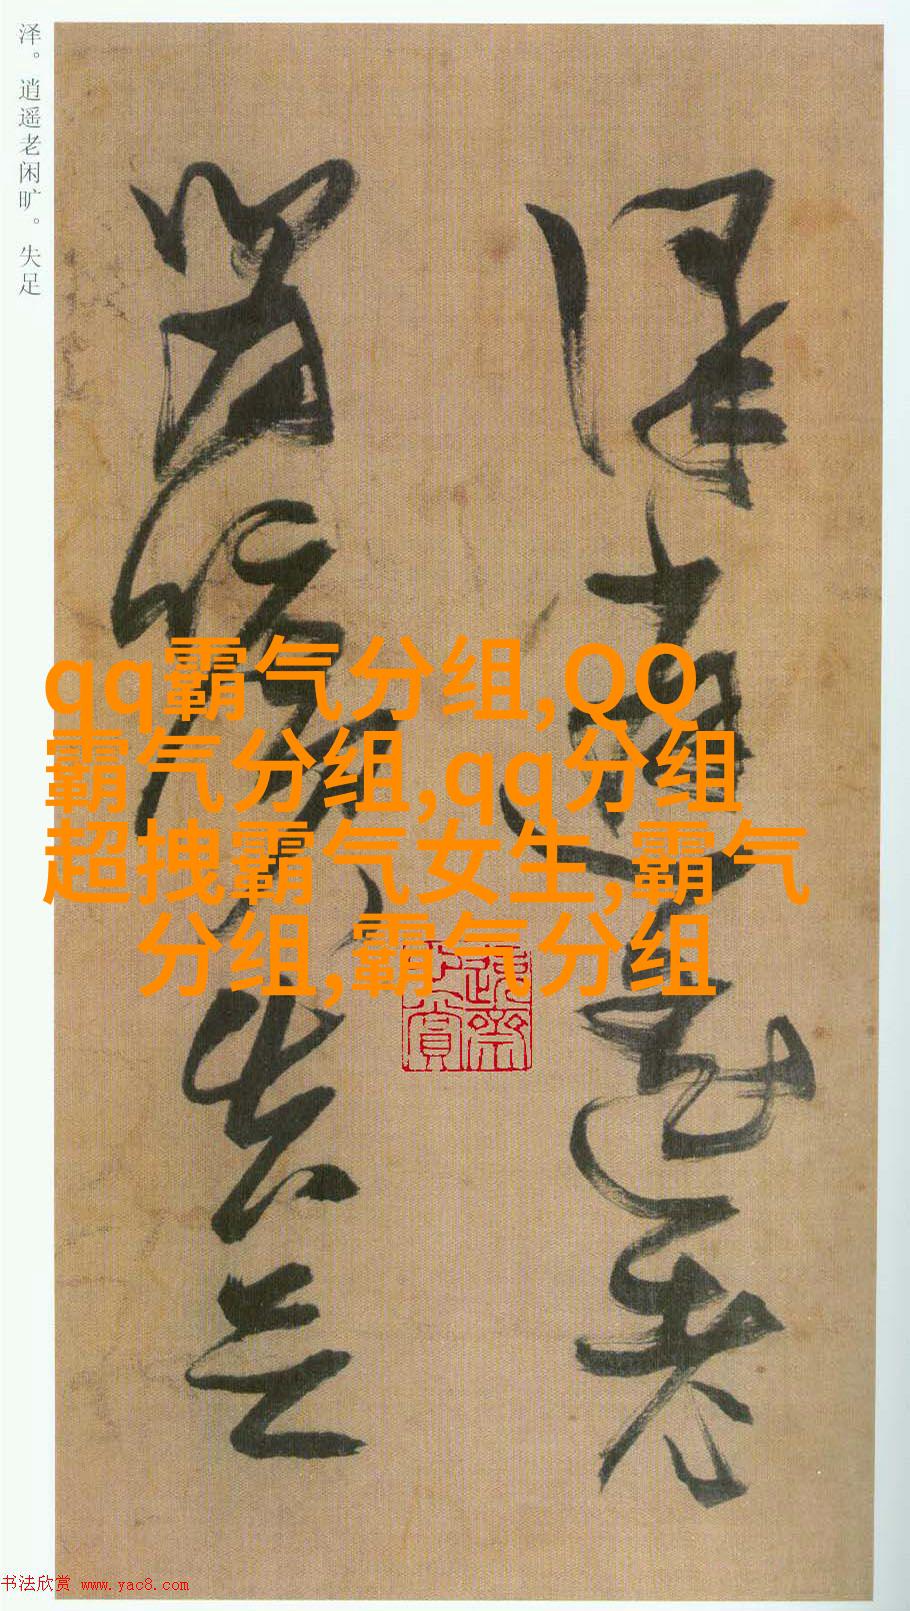 泽。逍遥老闲旷。失足
泽逍遥老
闲旷失足
qq霸气分组,QQ
霸气分组,qq分组
超拽霸气女生,霸气
分组,霸气分组
书法欣赏 www.yac8.com